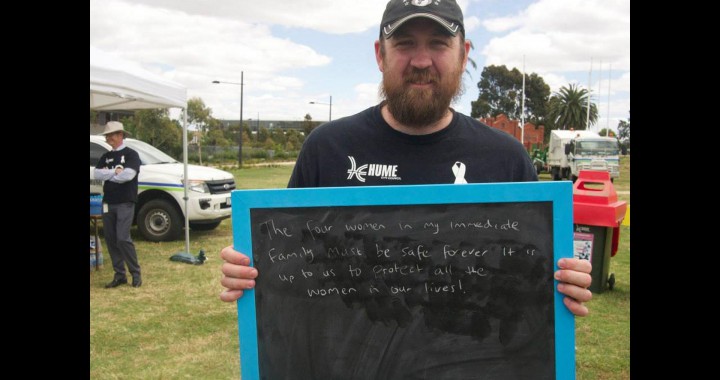 HUME
The four women in my immediate
Family must be safe forever It is
up to us to protect all the
women in our lives!